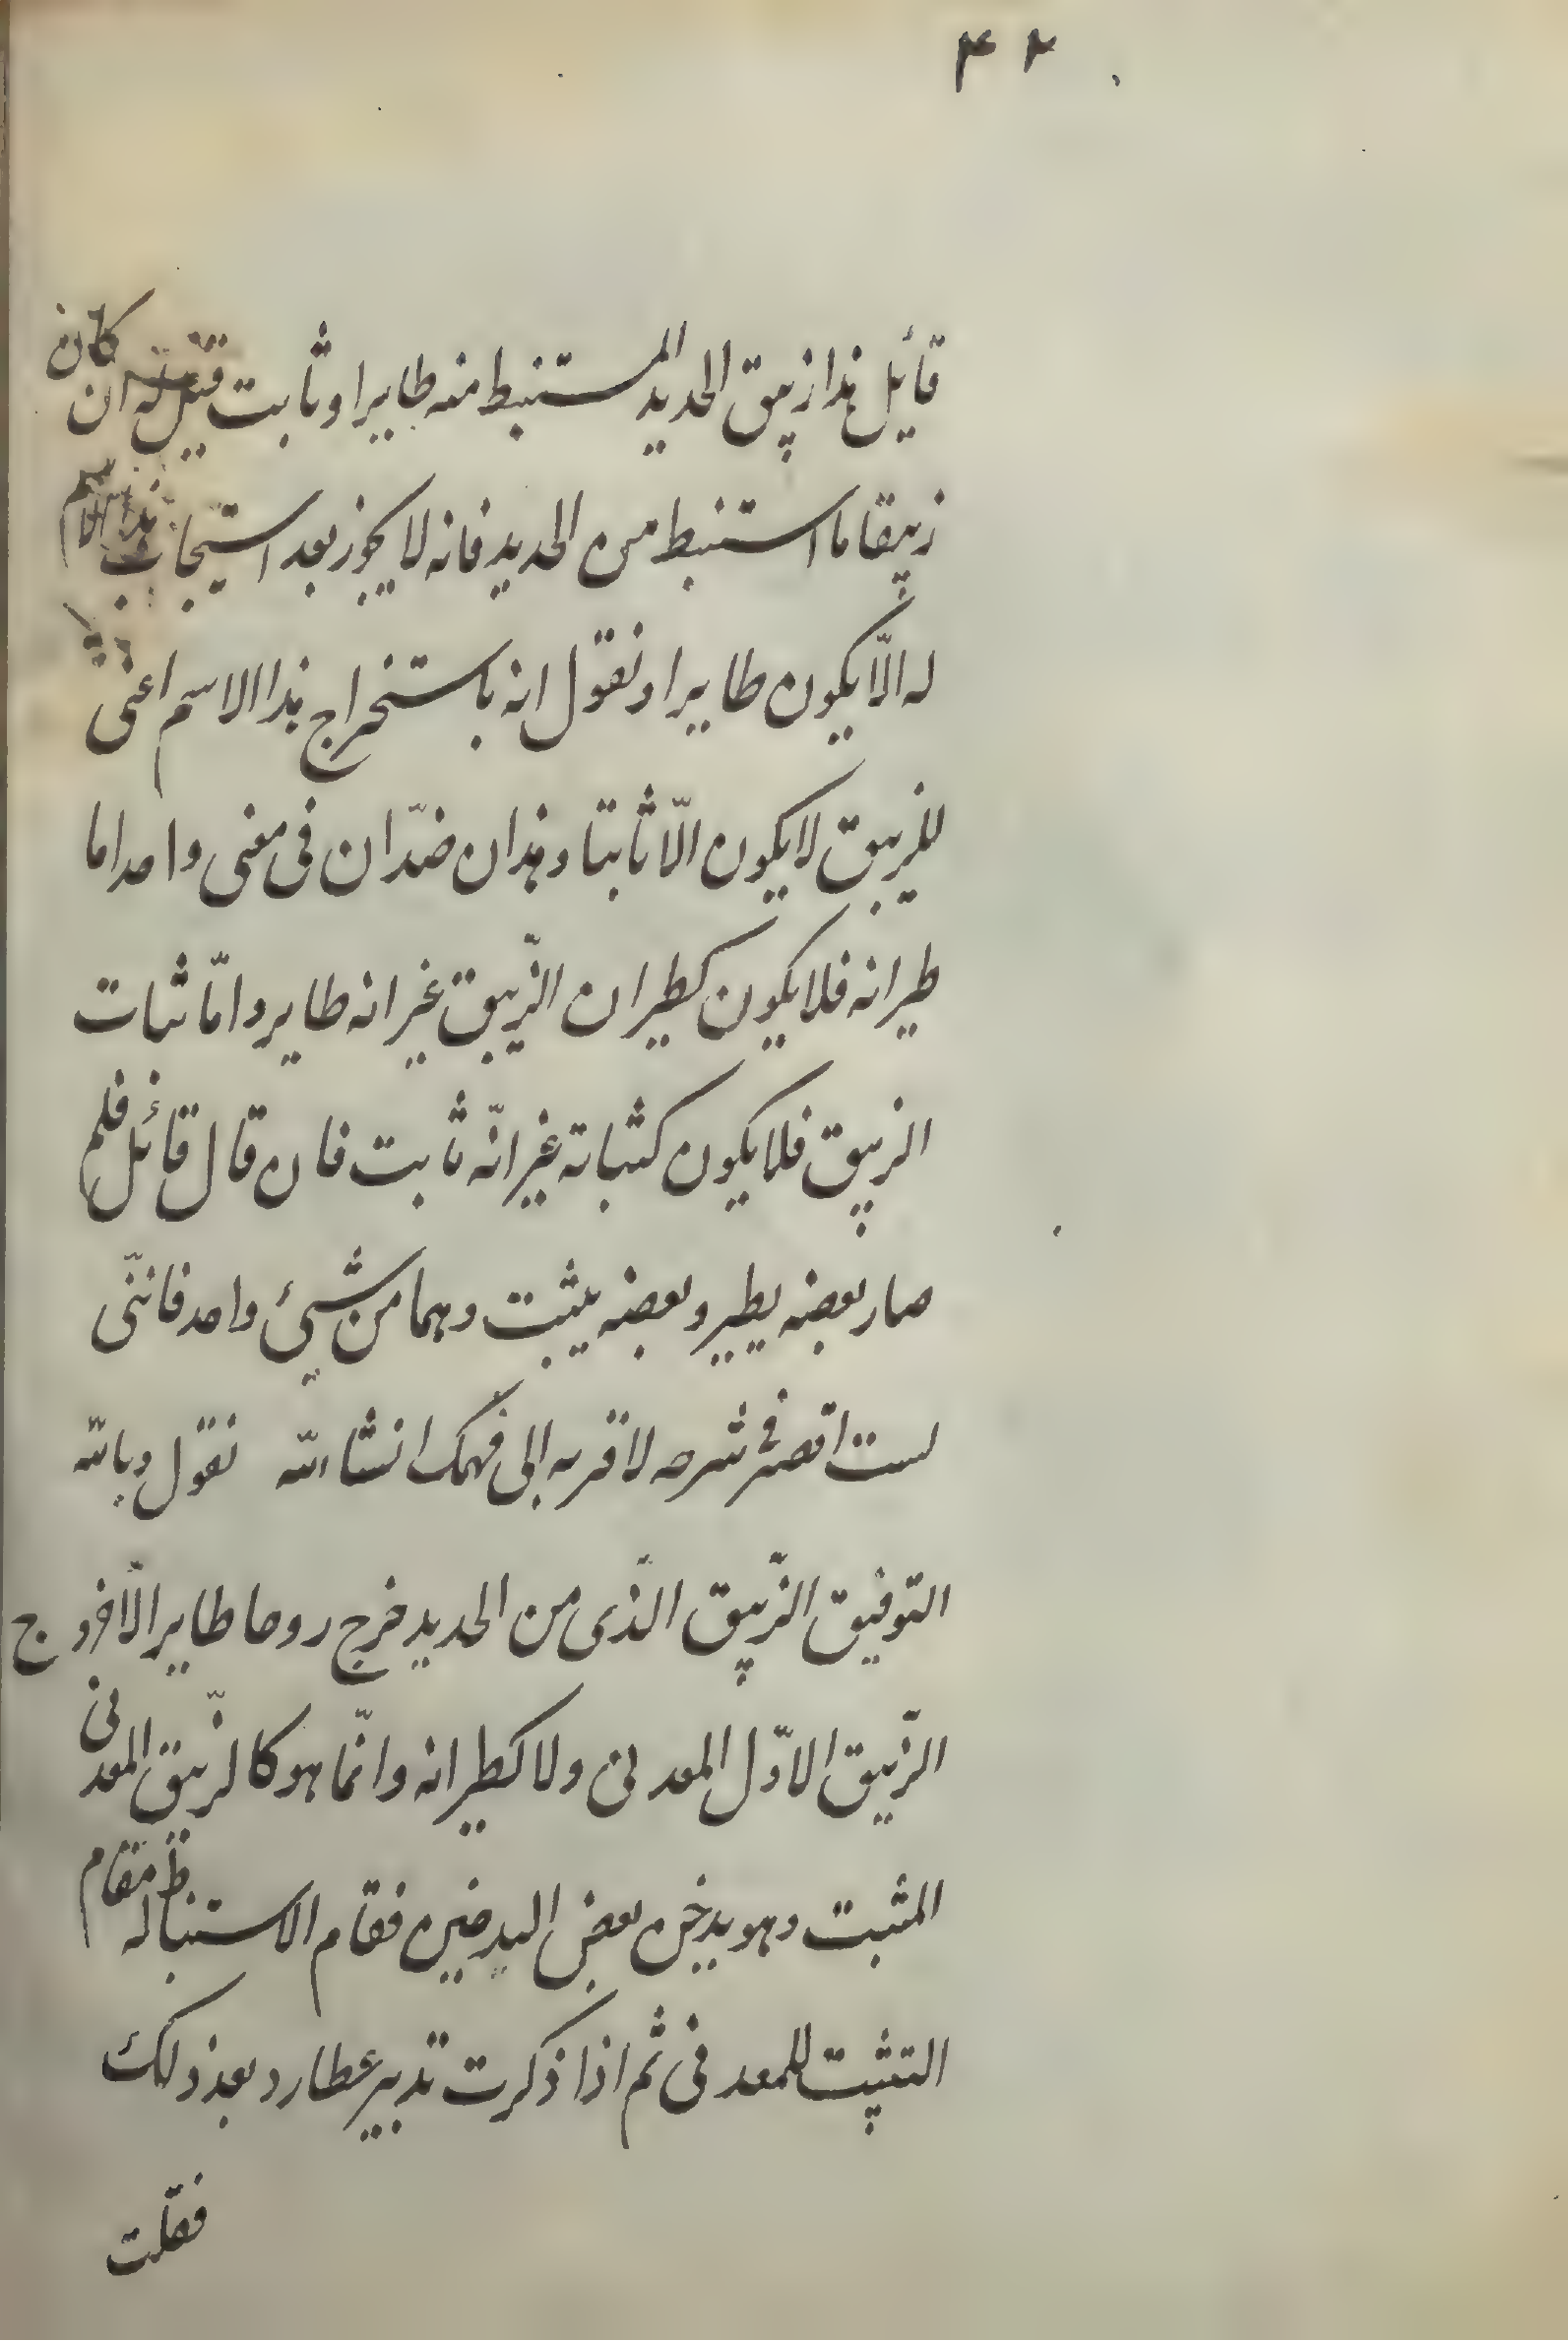 ۴۲
قائل هذا زیبق الحدید المستنبط منه طایرا و ثابت قیل له ان کان
زیبقا ما استنبط من الحدید فانه لا یجوز بعد استیجاب هذا الاسم
له الّا یکون طایرا و نقول انه باستخراج هذا الاسم اعنی
للزیبق لا یکون الّا ثابتا و هذان ضدّان فی معنی واحد اما
طیرانه فلا یکون کطیران الزّیبق غیر انه طایر و امّا ثبات
الزیبق فلا یکون کثباته غیر انّه ثابت فان قال قائل فلم
صار بعضه یطیر و بعضه یثبت و هما من شیئ واحد فاننّی
لست اقصر فی شرحه لاقربه الی فهمک انشاءالله نقول و بالله
التوفیق الزّیبق الذّی من الحدید خرج روحا طایرا لا خروج
الزّیبق الاوّل المعدنی ولا کطیرانه و انّما هو کالزّیبق المعدنی
المثبت و هو یدخن بعض فقام الاستنباط له مقام
التثبیت للمعدنی ثم اذا ذکرت تدبیر عطارد بعد ذلک
فقلت